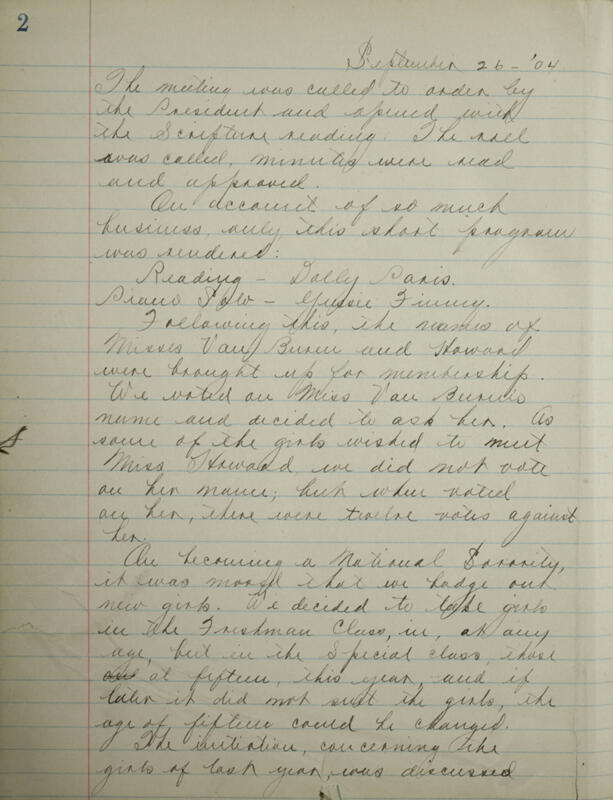 2
September 26 - '04
The meeting was called to order by
the President and opened with
the Scripture reading. The roll
was called, minutes were read
and approved.
On account of so much
business, only this short program
was rendered:
Reading - Dolly Paris.
Piano Solo - Gussie Finney.
Following this, the names of
Misses Van Buren and Howard
were brought up for membership.
We voted on Miss Van Buren's
name and decided to ask her. As
some of the girls wished to meet
Miss Howard, we did not vote
on her name; but when voted
on her, there were twelve votes against
her.
On becoming a National Sorority,
it was moved that we badge our
new girls. We decided to take girls
in the Freshman Class, in, at any
age, but in the Special class, those
at fifteen, this year, and if
later it did not suit the girls, the
age of fifteen could be changed.
The initiation, concerning the
girls of last year, was discussed